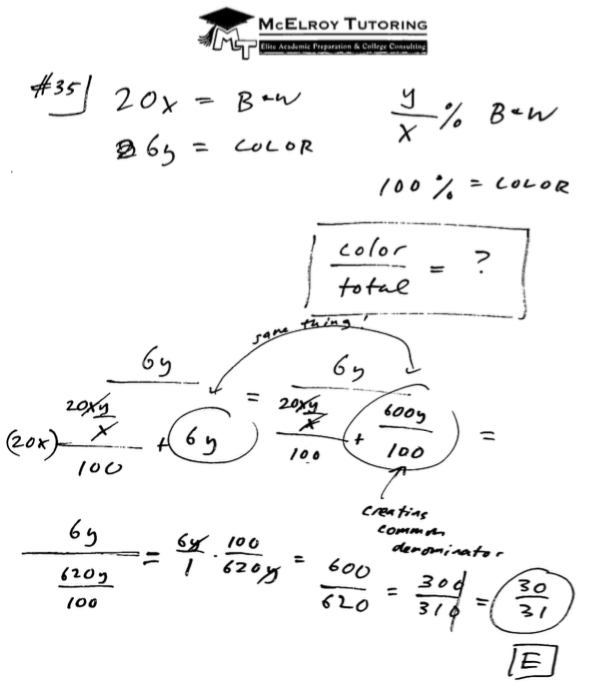 McELROY TUTORING
MT
Elite Academic Preparation & College Consulting
#35
20x = B+W
y/x % B+W
6y = COLOR
100% = COLOR
color/total = ?
same thing!
6y / ((20x) (20xy/x)/100 + 6y) = 6y / ((20xy/x)/100 + 600y/100) =
creating
common
denominator
6y / (620y/100) = 6y/1 · 100/620y = 600/620 = 300/310 = 30/31
E